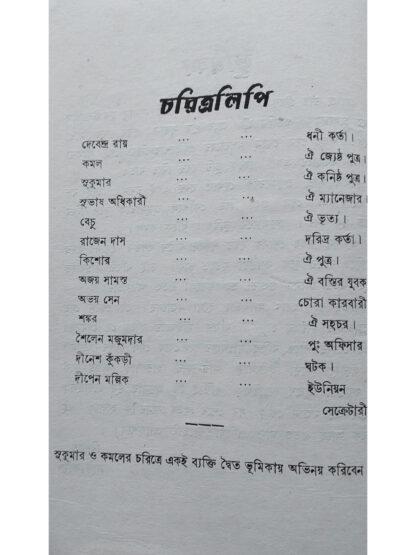 চরিত্রলিপি
দেবেন্দ্র রায় ... ... ধনী কর্তা।
কমল ... ... ঐ জ্যেষ্ঠ পুত্র।
সুকুমার ... ... ঐ কনিষ্ঠ পুত্র।
সুভাষ অধিকারী ... ... ঐ ম্যানেজার।
বেচু ... ... ঐ ভৃত্য।
রাজেন দাস ... ... দরিদ্র কর্তা।
কিশোর ... ... ঐ পুত্র।
অজয় সামন্ত ... ... ঐ বস্তির যুবক
অভয় সেন ... ... চোরা কারবারী
শঙ্কর ... ... ঐ সহচর।
শৈলেন মজুমদার ... ... পুঃ অফিসার
দীনেশ কুঁকড়ী ... ... ঘটক।
দীপেন মল্লিক ... ... ইউনিয়ন
সেক্রেটারী
সুকুমার ও কমলের চরিত্রে একই ব্যক্তি দ্বৈত ভূমিকায় অভিনয় করিবেন